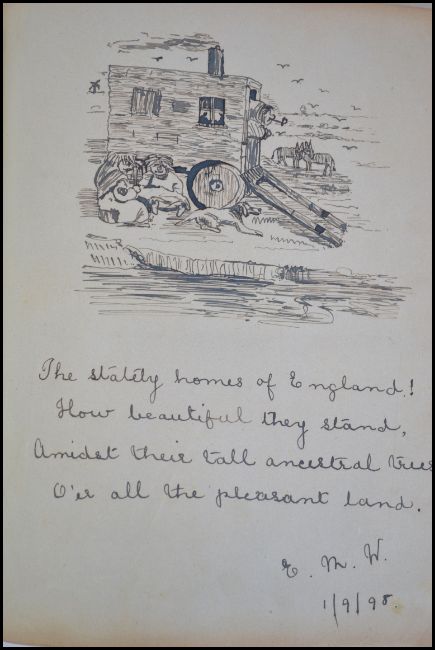 The stately homes of England!
How beautiful they stand,
Amidst their tall ancestral trees
O'er all the pleasant land.
E. M. W.
1/9/98.